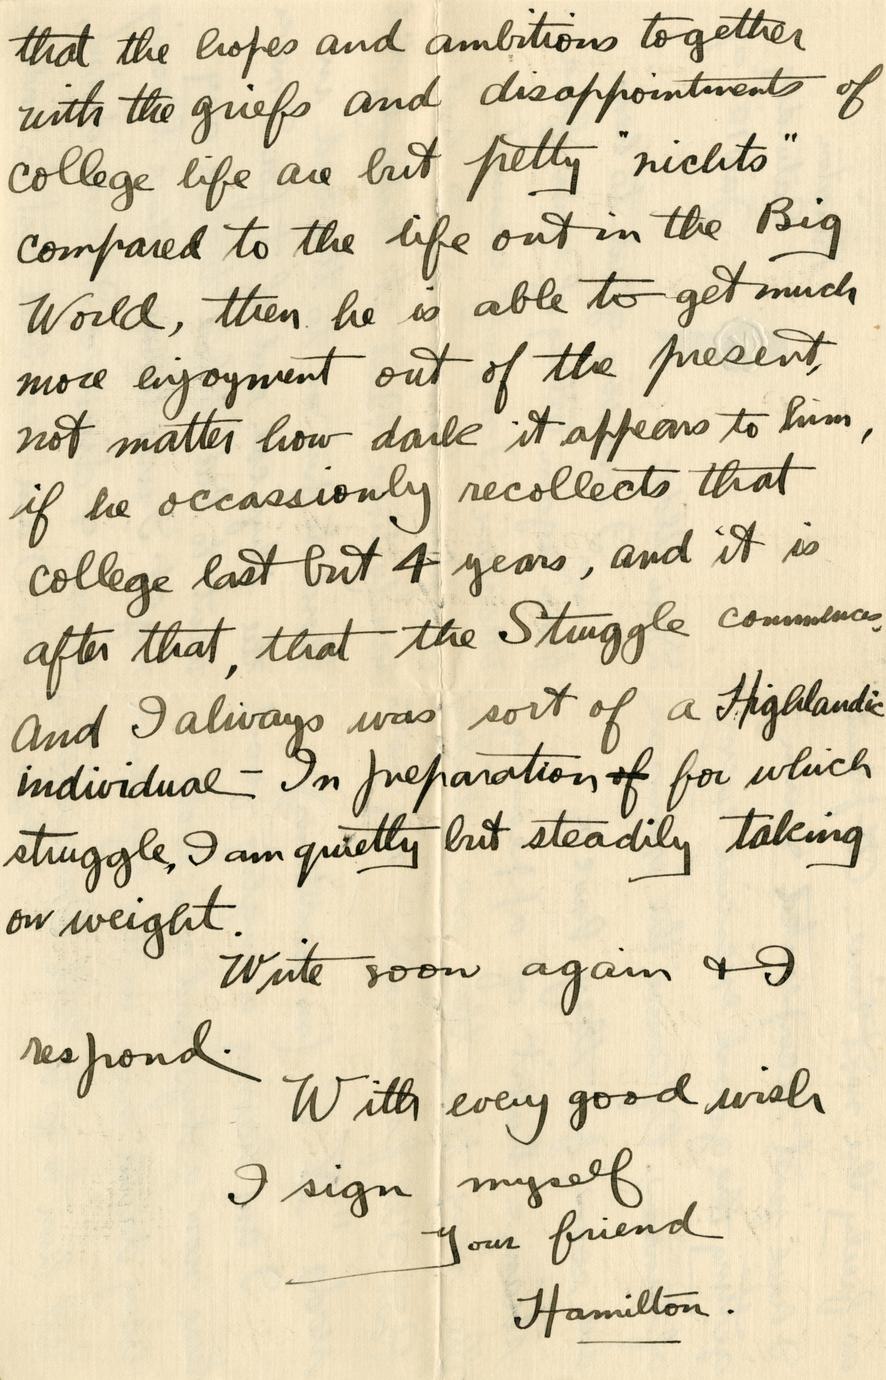 that the hopes and ambitions together
with the griefs and disappointments of
college life are but petty "nichts"
compared to the life out in the Big
World, then he is able to get much
more enjoyment out of the present,
not matter how dark it appears to him,
if he occassionly recollects that
college last but 4 years, and it is
after that, that the Struggle commences.
And I always was sort of a Highlandic
individual – In preparation of for which
struggle, I am quietly but steadily taking
on weight.
Write soon again & I
respond.
With every good wish
I sign myself
Your friend
Hamilton.